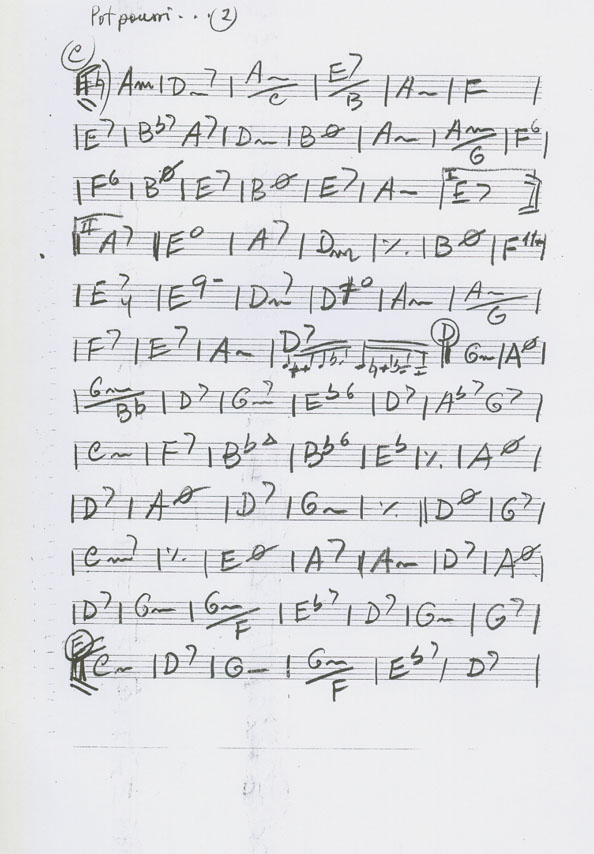 Potpourri... (2)
C
Am | Dm7 | Am/C | E7/B | Am | F |
| E7 | Bb7 A7 | Dm | BØ | Am | Am/G | F6 |
| F6 | BØ | E7 | BØ | E7 | Am | I E7 |
II A7 | E° | A7 | Dm | ٪ | BØ | F11+
| E74 | E9- | Dm7 | D#° | Am | Am/G |
| F7 | E7 | Am | D7 | D Gm | AØ |
| Gm/Bb | D7 | Gm7 | Eb6 | D7 | Ab7 G7 |
| Cm | F7 | BbΔ | Bb6 | Eb | ٪ | AØ |
| D7 | AØ | D7 | Gm | ٪ || DØ | G7 |
| Cm7 | ٪ | EØ | A7 | Am | D7 | AØ |
| D7 | Gm | Gm/F | Eb7 | D7 | Gm | G7 |
E Cm | D7 | Gm | Gm/F | Eb7 | D7 |